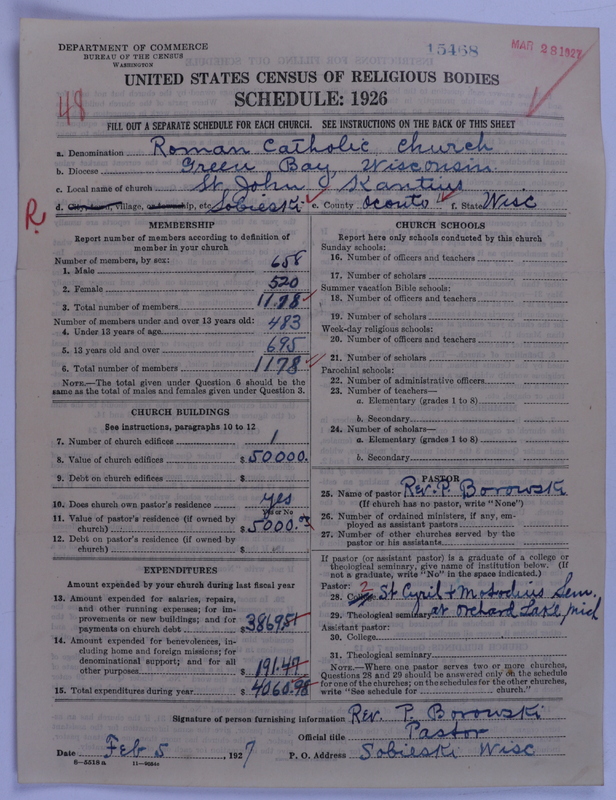 DEPARTMENT OF COMMERCE
BUREAU OF THE CENSUS
WASHINGTON
15468
MAR 28 1927
UNITED STATES CENSUS OF RELIGIOUS BODIES
SCHEDULE: 1926
48
FILL OUT A SEPARATE SCHEDULE FOR EACH CHURCH. SEE INSTRUCTIONS ON THE BACK OF THIS SHEET
a. Denomination Roman Catholic Church
b. Diocese Green Bay, Wisconsin.
c. Local name of church St. John Kantius
d. City, town, village, township, etc Sobieski e. County Oconto f. State Wisc
R
MEMBERSHIP
Report number of members according to definition of
member in your church
Number of members, by sex:
1. Male 658
2. Female 520
3. Total number of members 1178
Number of members under and over 13 years old:
4. Under 13 years of age 483
5. 13 years old and over 695
6. Total number of members 1178
NOTE.—The total given under Question 6 should be the
same as the total of males and females given under Question 3.
CHURCH BUILDINGS
See instructions, paragraphs 10 to 12
7. Number of church edifices 1
8. Value of church edifices $ 50000.
9. Debt on church edifices $
10. Does church own pastor's residence yes
Yes or No
11. Value of pastor's residence (if owned by
church) $ 5000.00
12. Debt on pastor's residence (if owned by
church) $
EXPENDITURES
Amount expended by your church during last fiscal year
13. Amount expended for salaries, repairs,
and other running expenses; for im-
provements or new buildings; and for
payments on church debt $ 3869.51
14. Amount expended for benevolences, in-
cluding home and foreign missions; for
denominational support; and for all
other purposes $ 191.47
15. Total expenditures during year $ 4060.98
CHURCH SCHOOLS
Report here only schools conducted by this church
Sunday schools:
16. Number of officers and teachers
17. Number of scholars
Summer vacation Bible schools:
18. Number of officers and teachers
19. Number of scholars
Week-day religious schools:
20. Number of officers and teachers
21. Number of scholars
Parochial schools:
22. Number of administrative officers
23. Number of teachers—
a. Elementary (grades 1 to 8)
b. Secondary
24. Number of scholars—
a. Elementary (grades 1 to 8)
b. Secondary
PASTOR
25. Name of pastor Rev. P. Borowski
(If church has no pastor, write "None")
26. Number of ordained ministers, if any, em-
ployed as assistant pastors
27. Number of other churches served by the
pastor or his assistants
If pastor (or assistant pastor) is a graduate of a college or
theological seminary, give name of institution below. (If
not a graduate, write "No" in the space indicated.)
Pastor: 2
28. College St Cyril & Metodius Sem.
29. Theological seminary at Orchard Lake, Mich
Assistant pastor:
30. College
31. Theological seminary
NOTE.—Where one pastor serves two or more churches,
Questions 28 and 29 should be answered only on the schedule
for one of the churches; on the schedules for the other churches,
write "See schedule for church."
Signature of person furnishing information Rev. P. Borowski
Official title Pastor
Date Feb 5, 1927 P. O. Address Sobieski Wisc
8—5518 a